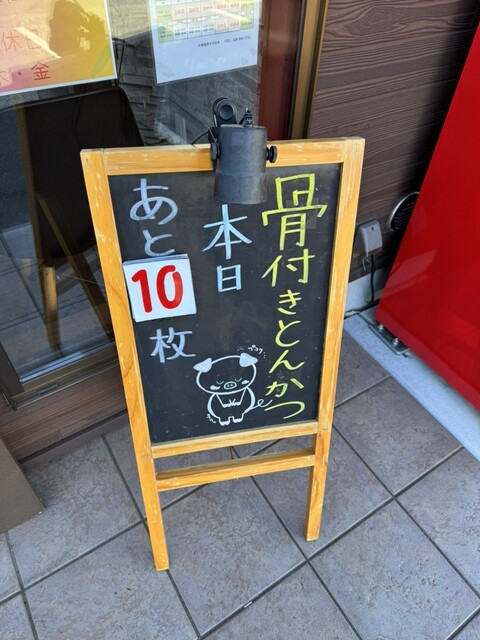 骨付きとんかつ
本日
あと
10
枚
ペコリ
休
木・金